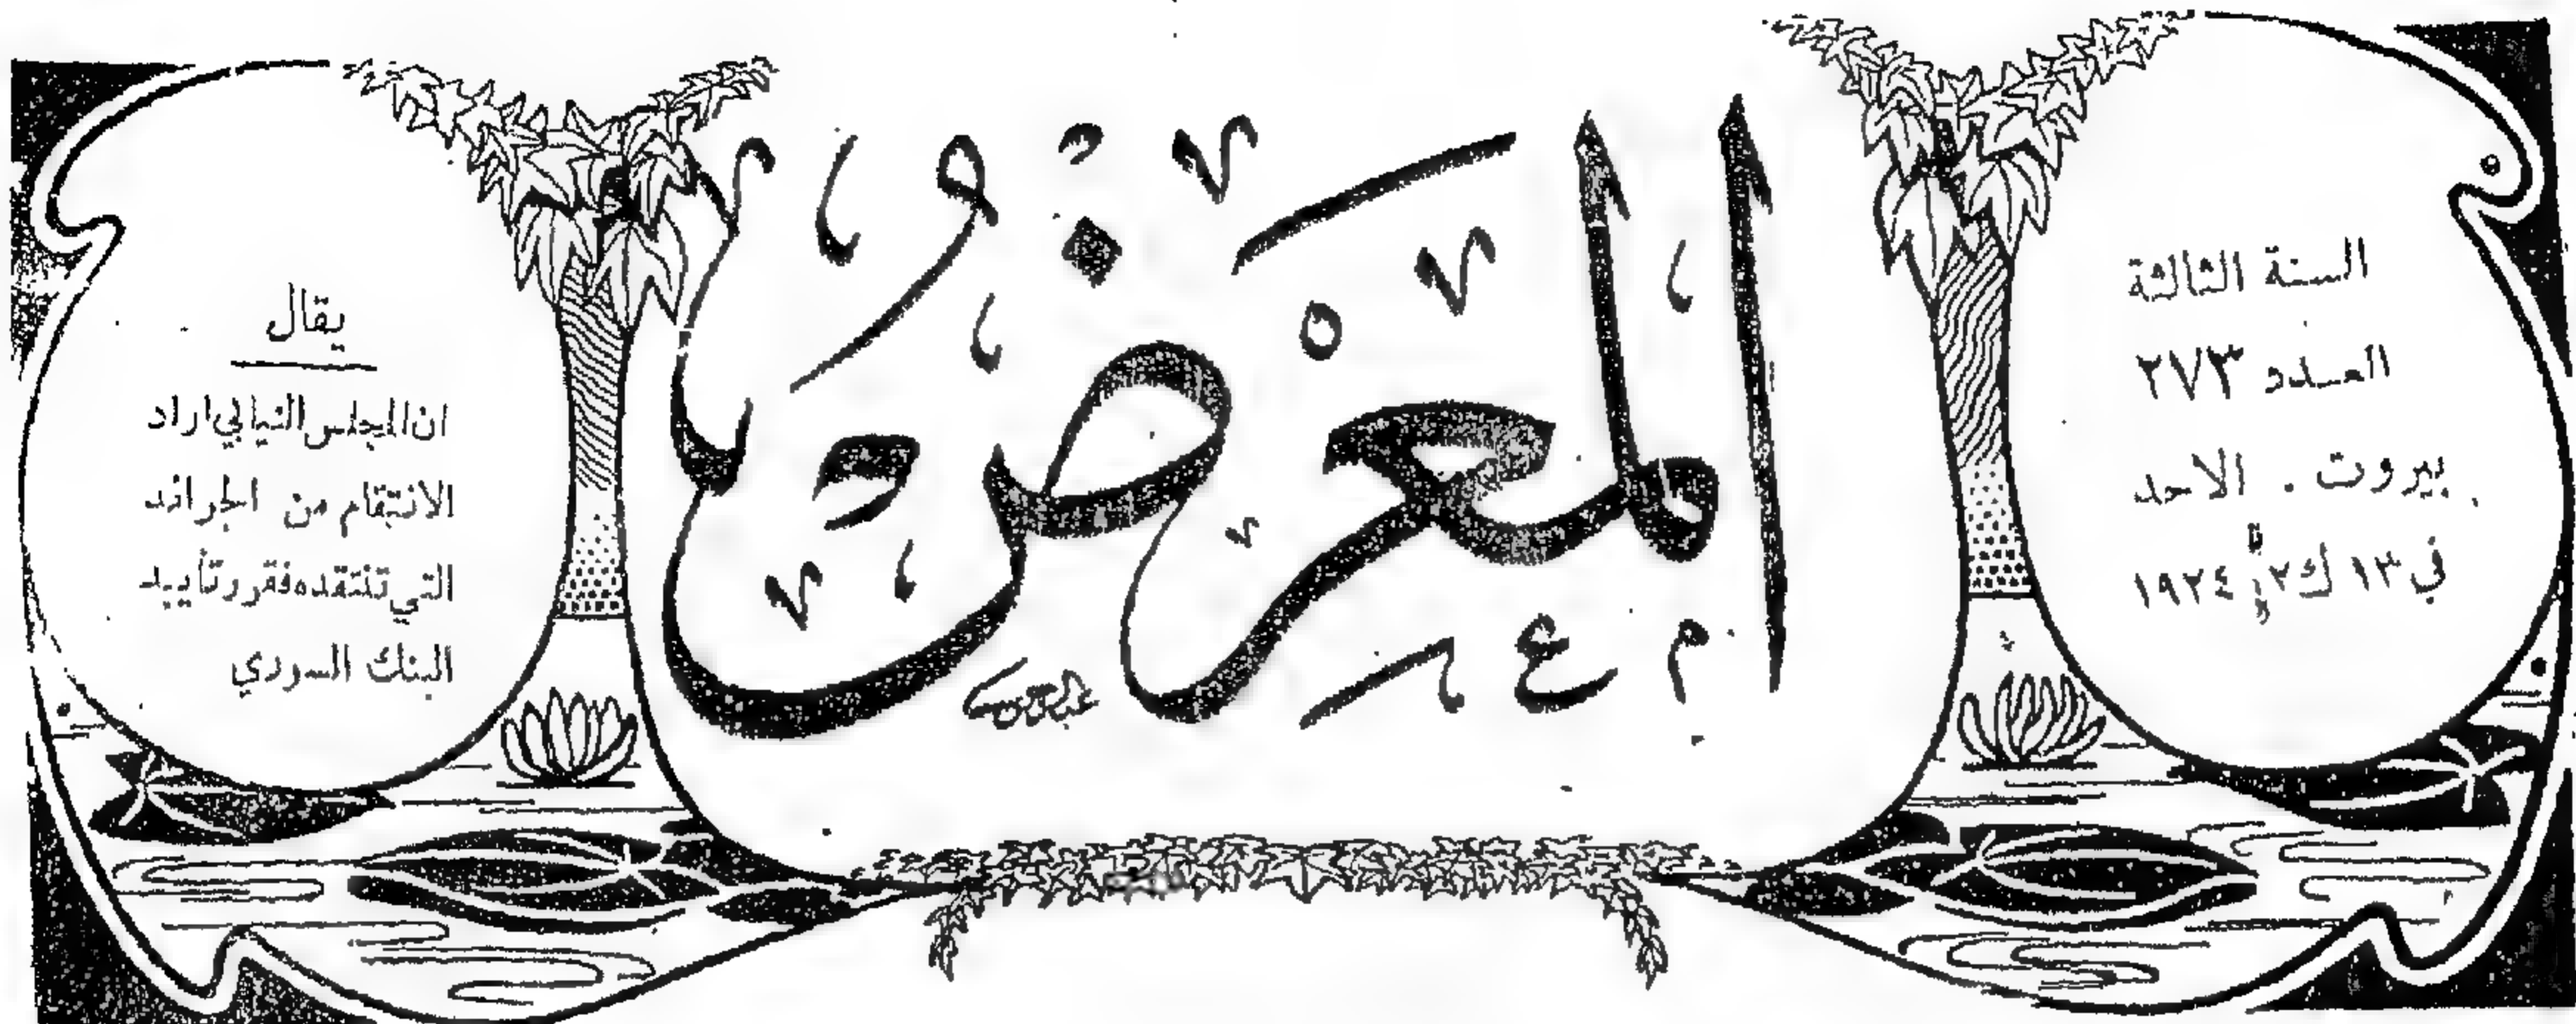 السنة الثالثة
العدد ٢٧٣
بيروت . الاحد
في ١٣ ك٢ ١٩٢٤
المعرض
يقال
ان المجلس النيابي اراد
الانتقام من الجرائد
التي تنتقده فقرر تأييد
البنك السوري